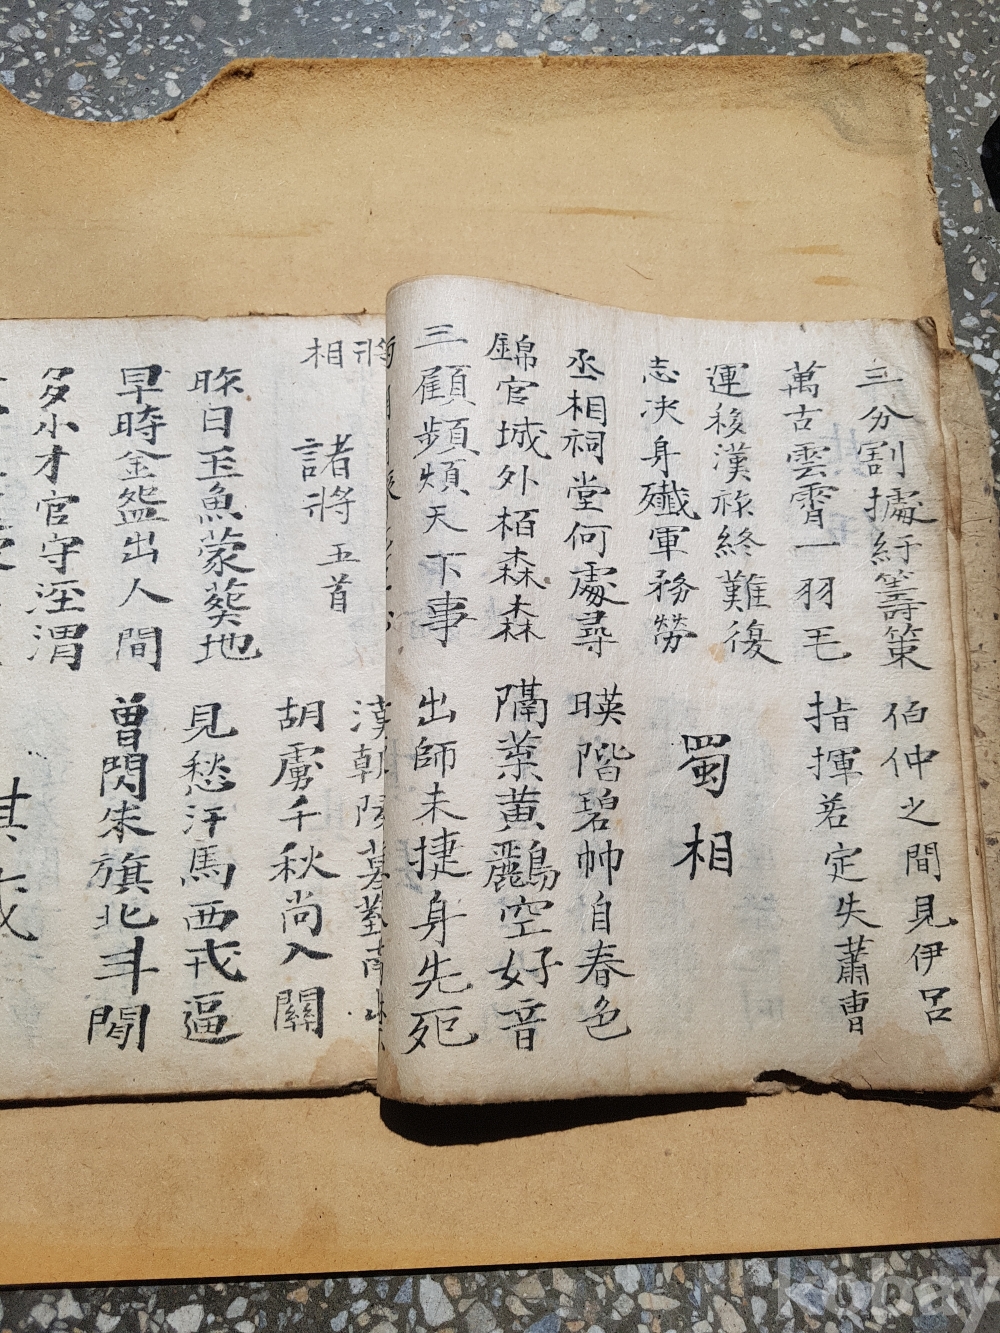 三分割據紆籌策 伯仲之間見伊呂
萬古雲霄一羽毛 指揮若定失蕭曹
運移漢祚終難復
志决身殲軍務勞
蜀相
丞相祠堂何處尋 暎階碧艸自春色
錦官城外栢森森 隔葉黃鸝空好音
三顧頻煩天下事 出師未捷身先死
將相
諸將 五首
漢朝陵墓對南山
胡虜千秋尚入關
昨日玉魚蒙葬地 見愁汗馬西戎逼
早時金盌出人間 曾閃朱旗北斗閒
多小才官守涇渭
其
kobay